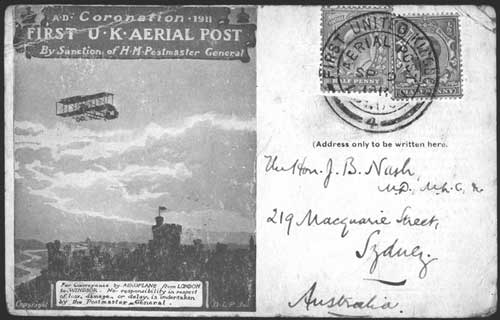 A.D. Coronation 1911
FIRST U.K. AERIAL POST
By Sanction of H.M. Postmaster General
For Conveyance by AEROPLANE from LONDON
to WINDSOR. No responsibility in respect
of loss, damage, or delay, is undertaken
by the Postmaster General.
Copyright
HALF PENNY
FIRST UNITED KINGDOM
AERIAL POST
4
(Address only to be written here.
The Hon. J. B. Nash,
M.D., M.L.C.
219 Macquarie Street,
Sydney.
Australia.